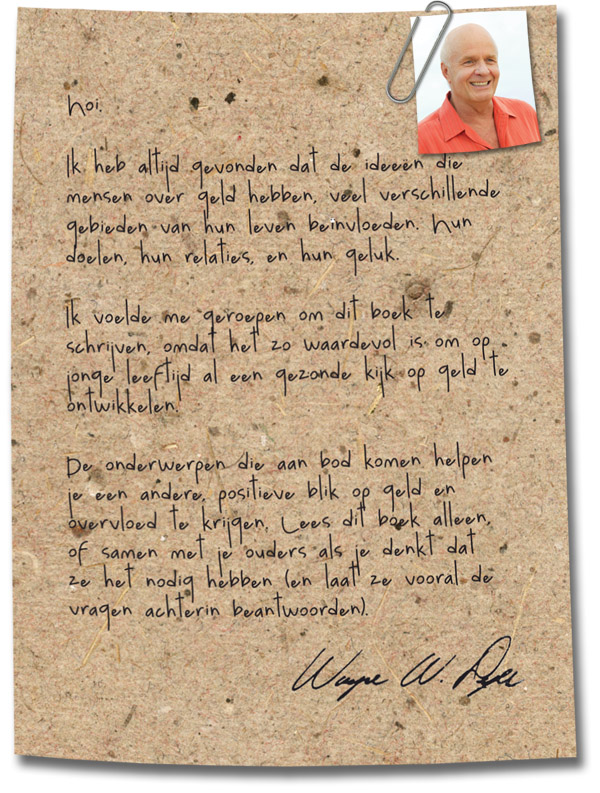 hoi.
Ik heb altijd gevonden dat de ideeën die
mensen over geld hebben, veel verschillende
gebieden van hun leven beïnvloeden. Hun
doelen, hun relaties, en hun geluk.
Ik voelde me geroepen om dit boek te
schrijven, omdat het zo waardevol is om op
jonge leeftijd al een gezonde kijk op geld te
ontwikkelen.
De onderwerpen die aan bod komen helpen
je een andere, positieve blik op geld en
overvloed te krijgen. Lees dit boek alleen,
of samen met je ouders als je denkt dat
ze het nodig hebben (en laat ze vooral de
vragen achterin beantwoorden).
Wayne W. Dyer